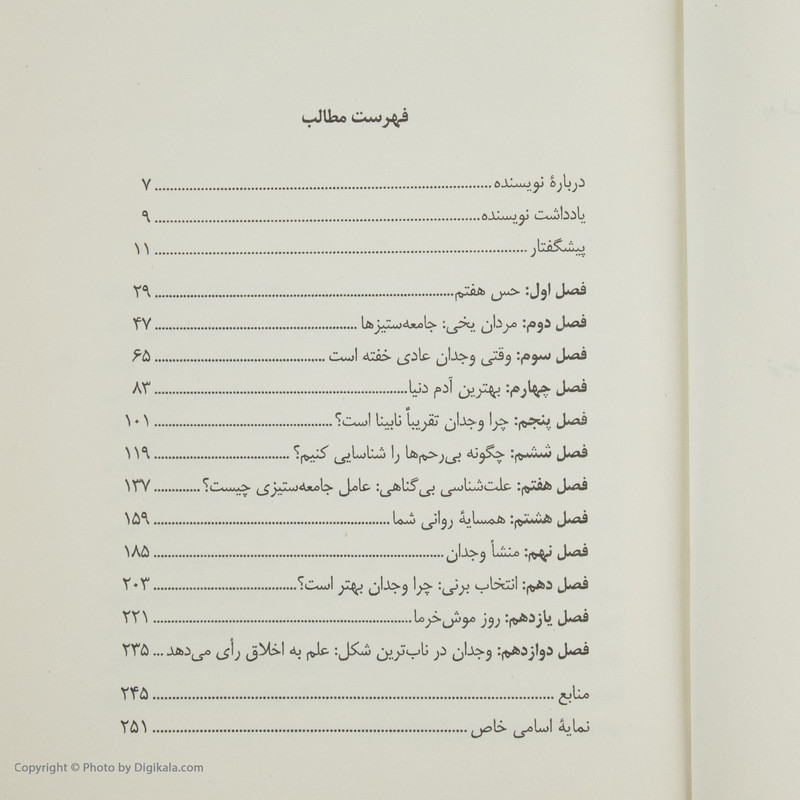 فهرست مطالب
دربارهٔ نویسنده ................ ۷
یادداشت نویسنده ................ ۹
پیشگفتار ................ ۱۱
فصل اول: حس هفتم ................ ۲۹
فصل دوم: مردان یخی: جامعه‌ستیزها ................ ۴۷
فصل سوم: وقتی وجدان عادی خفته است ................ ۶۵
فصل چهارم: بهترین آدم دنیا ................ ۸۳
فصل پنجم: چرا وجدان تقریباً نابینا است؟ ................ ۱۰۱
فصل ششم: چگونه بی‌رحم‌ها را شناسایی کنیم؟ ................ ۱۱۹
فصل هفتم: علت‌شناسی بی‌گناهی: عامل جامعه‌ستیزی چیست؟ ............ ۱۳۷
فصل هشتم: همسایهٔ روانی شما ................ ۱۵۹
فصل نهم: منشأ وجدان ................ ۱۸۵
فصل دهم: انتخاب برنی: چرا وجدان بهتر است؟ ................ ۲۰۳
فصل یازدهم: روز موش‌خرما ................ ۲۲۱
فصل دوازدهم: وجدان در ناب‌ترین شکل: علم به اخلاق رأی می‌دهد ... ۲۳۵
منابع ................ ۲۴۵
نمایهٔ اسامی خاص ................ ۲۵۱
Copyright © Photo by Digikala.com